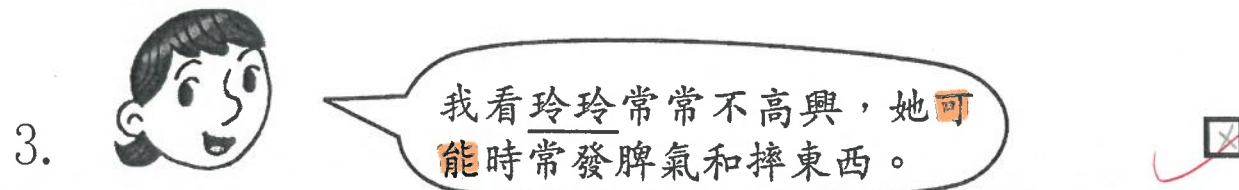 3.
我看玲玲常常不高興，她可
能時常發脾氣和摔東西。